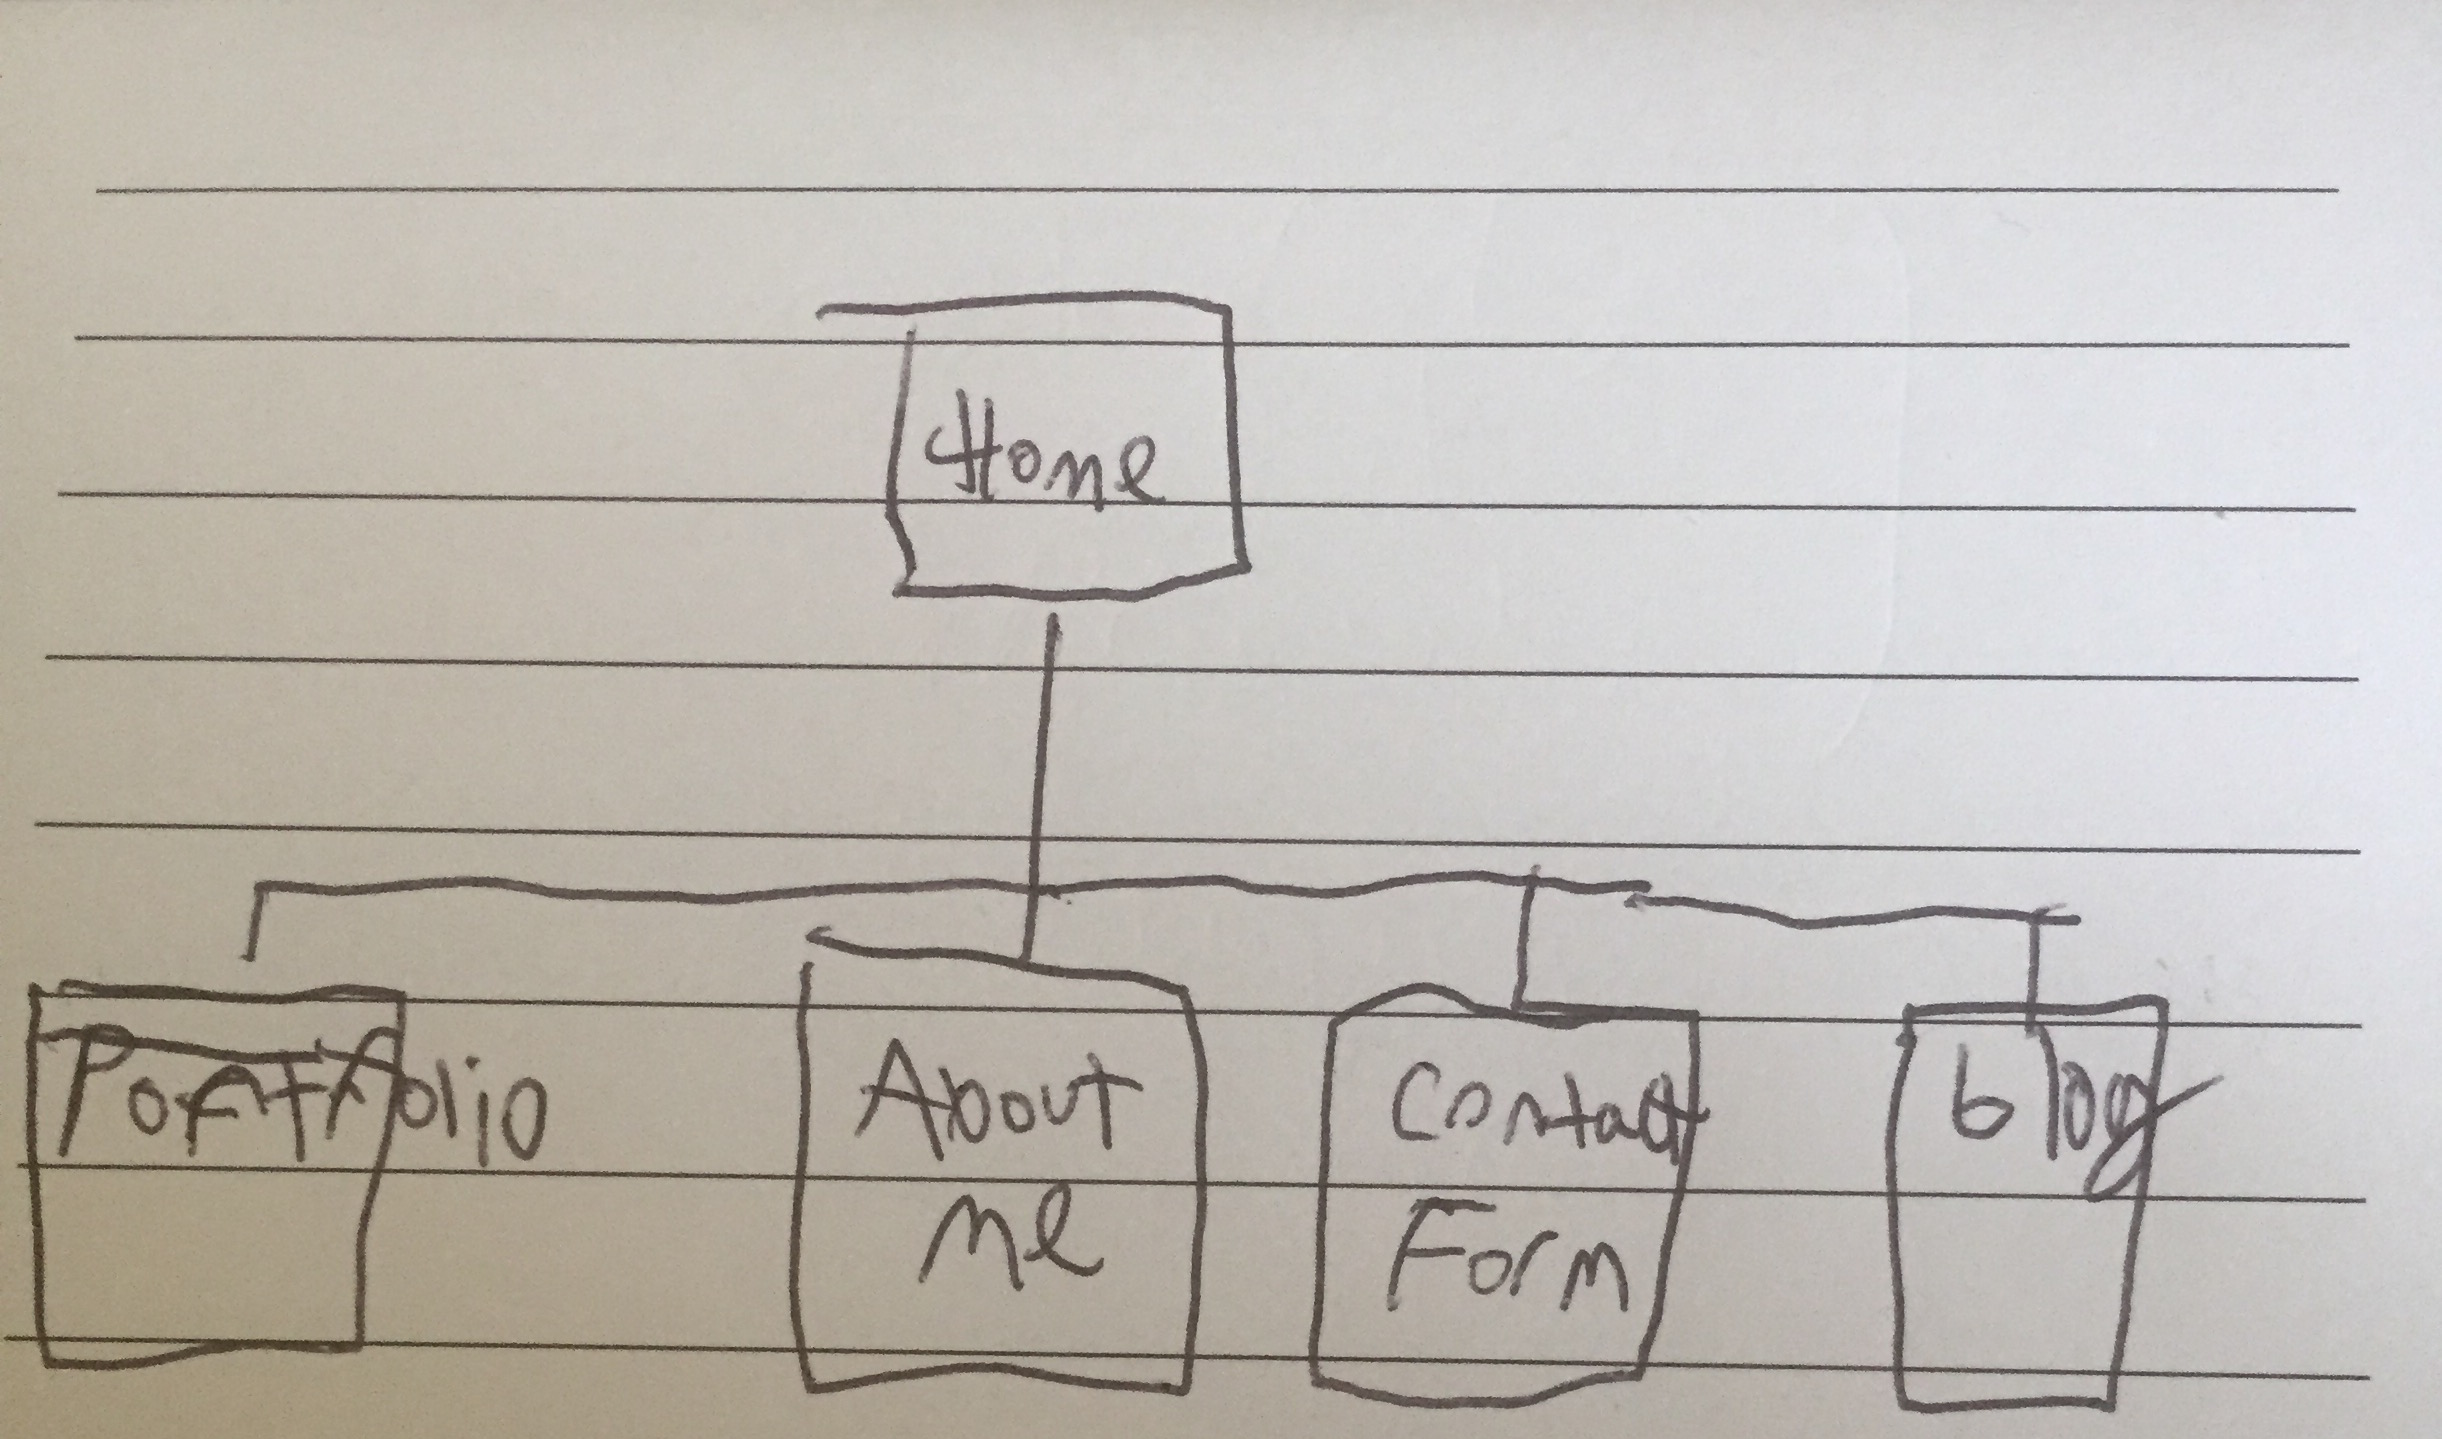 Home
Portfolio
About
me
Contact
Form
blog